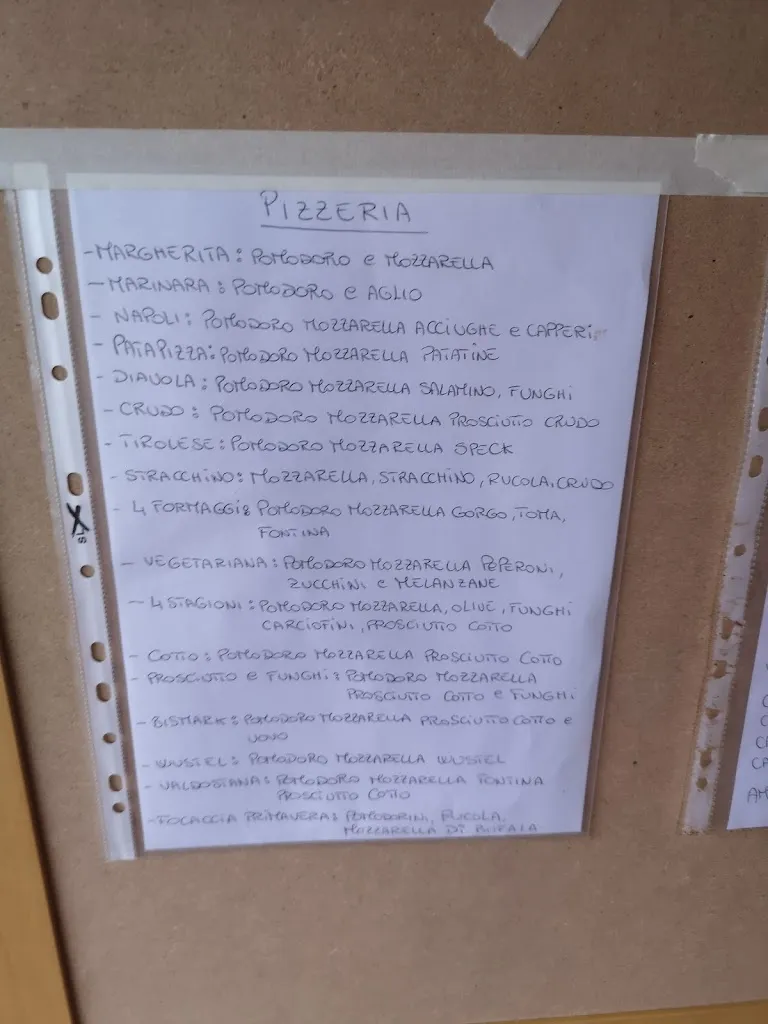 PIZZERIA
- MARGHERITA: POMODORO e MOZZARELLA
- MARINARA: POMODORO e AGLIO
- NAPOLI: POMODORO MOZZARELLA ACCIUGHE e CAPPERI
- PATAPIZZA: POMODORO MOZZARELLA PATATINE
- DIAVOLA: POMODORO MOZZARELLA SALAMINO, FUNGHI
- CRUDO: POMODORO MOZZARELLA PROSCIUTTO CRUDO
- TIROLESE: POMODORO MOZZARELLA SPECK
- STRACCHINO: MOZZARELLA, STRACCHINO, RUCOLA, CRUDO
- 4 FORMAGGI: POMODORO MOZZARELLA GORGO, TOMA,
FONTINA
- VEGETARIANA: POMODORO MOZZARELLA PEPERONI,
ZUCCHINI e MELANZANE
- 4 STAGIONI: POMODORO MOZZARELLA, OLIVE, FUNGHI
CARCIOFINI, PROSCIUTTO COTTO
- COTTO: POMODORO MOZZARELLA PROSCIUTTO COTTO
- PROSCIUTTO e FUNGHI: POMODORO MOZZARELLA
PROSCIUTTO COTTO e FUNGHI
- BISMARK: POMODORO MOZZARELLA PROSCIUTTO COTTO e
UOVO
- WUSTEL: POMODORO MOZZARELLA WUSTEL
- VALDOSTANA: POMODORO MOZZARELLA FONTINA
PROSCIUTTO COTTO
- FOCACCIA PRIMAVERA: POMODORINI, RUCOLA,
MOZZARELLA DI BUFALA